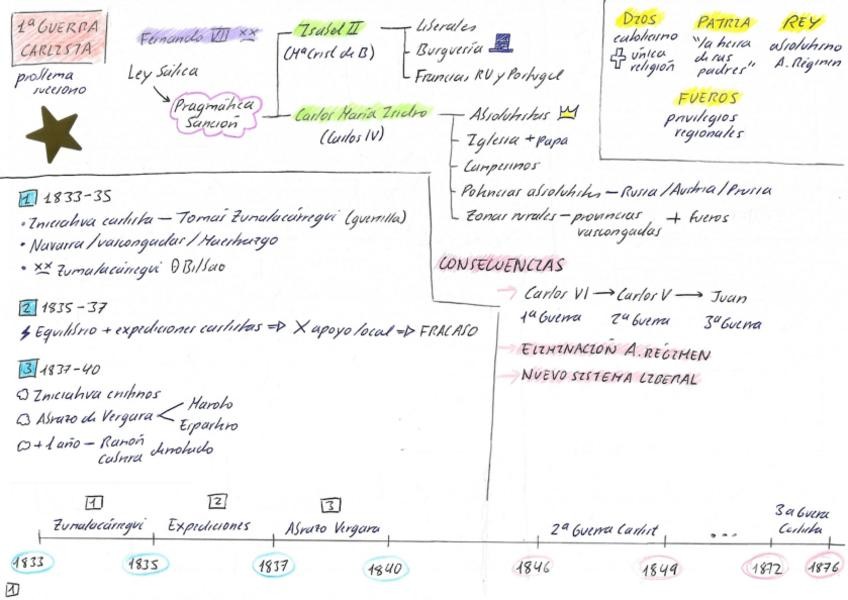 1ª GUERRA
CARLISTA
problema
sucesorio
Fernando VII xx
Ley Sálica
Pragmática
Sanción
Isabel II
(Mª Crist de B)
Liberales
Burguesía
Francia RU y Portugal
Carlos María Isidro
(Carlos IV)
Absolutistas
Iglesia + papa
Campesinos
Potencias absolutistas – Rusia / Austria / Prusia
Zonas rurales – provincias
vascongadas + fueros
DIOS
catolicismo
única
religión
PATRIA
"la tierra
de sus
padres"
REY
absolutismo
A. Régimen
FUEROS
privilegios
regionales
1 1833-35
• Iniciativa carlista – Tomás Zumalacárregui (guerrilla)
• Navarra / vascongadas / Maestrazgo
• xx Zumalacárregui θ Bilbao
2 1835-37
Equilibrio + expediciones carlistas ⇒ X apoyo local ⇒ FRACASO
3 1837-40
Iniciativa cristinos
Abrazo de Vergara < Maroto
Espartero
+ 1 año – Ramón
Cabrera derrotado
CONSECUENCIAS
→ Carlos VI → Carlos V → Juan
1ª Guerra 2ª Guerra 3ª Guerra
→ ELIMINACIÓN A. RÉGIMEN
→ NUEVO SISTEMA LIBERAL
1 2 3
Zumalacárregui Expediciones Abrazo Vergara 2ª Guerra Carlist ... 3ª Guerra
Carlista
1833 1835 1837 1840 1846 1849 1872 1876
1